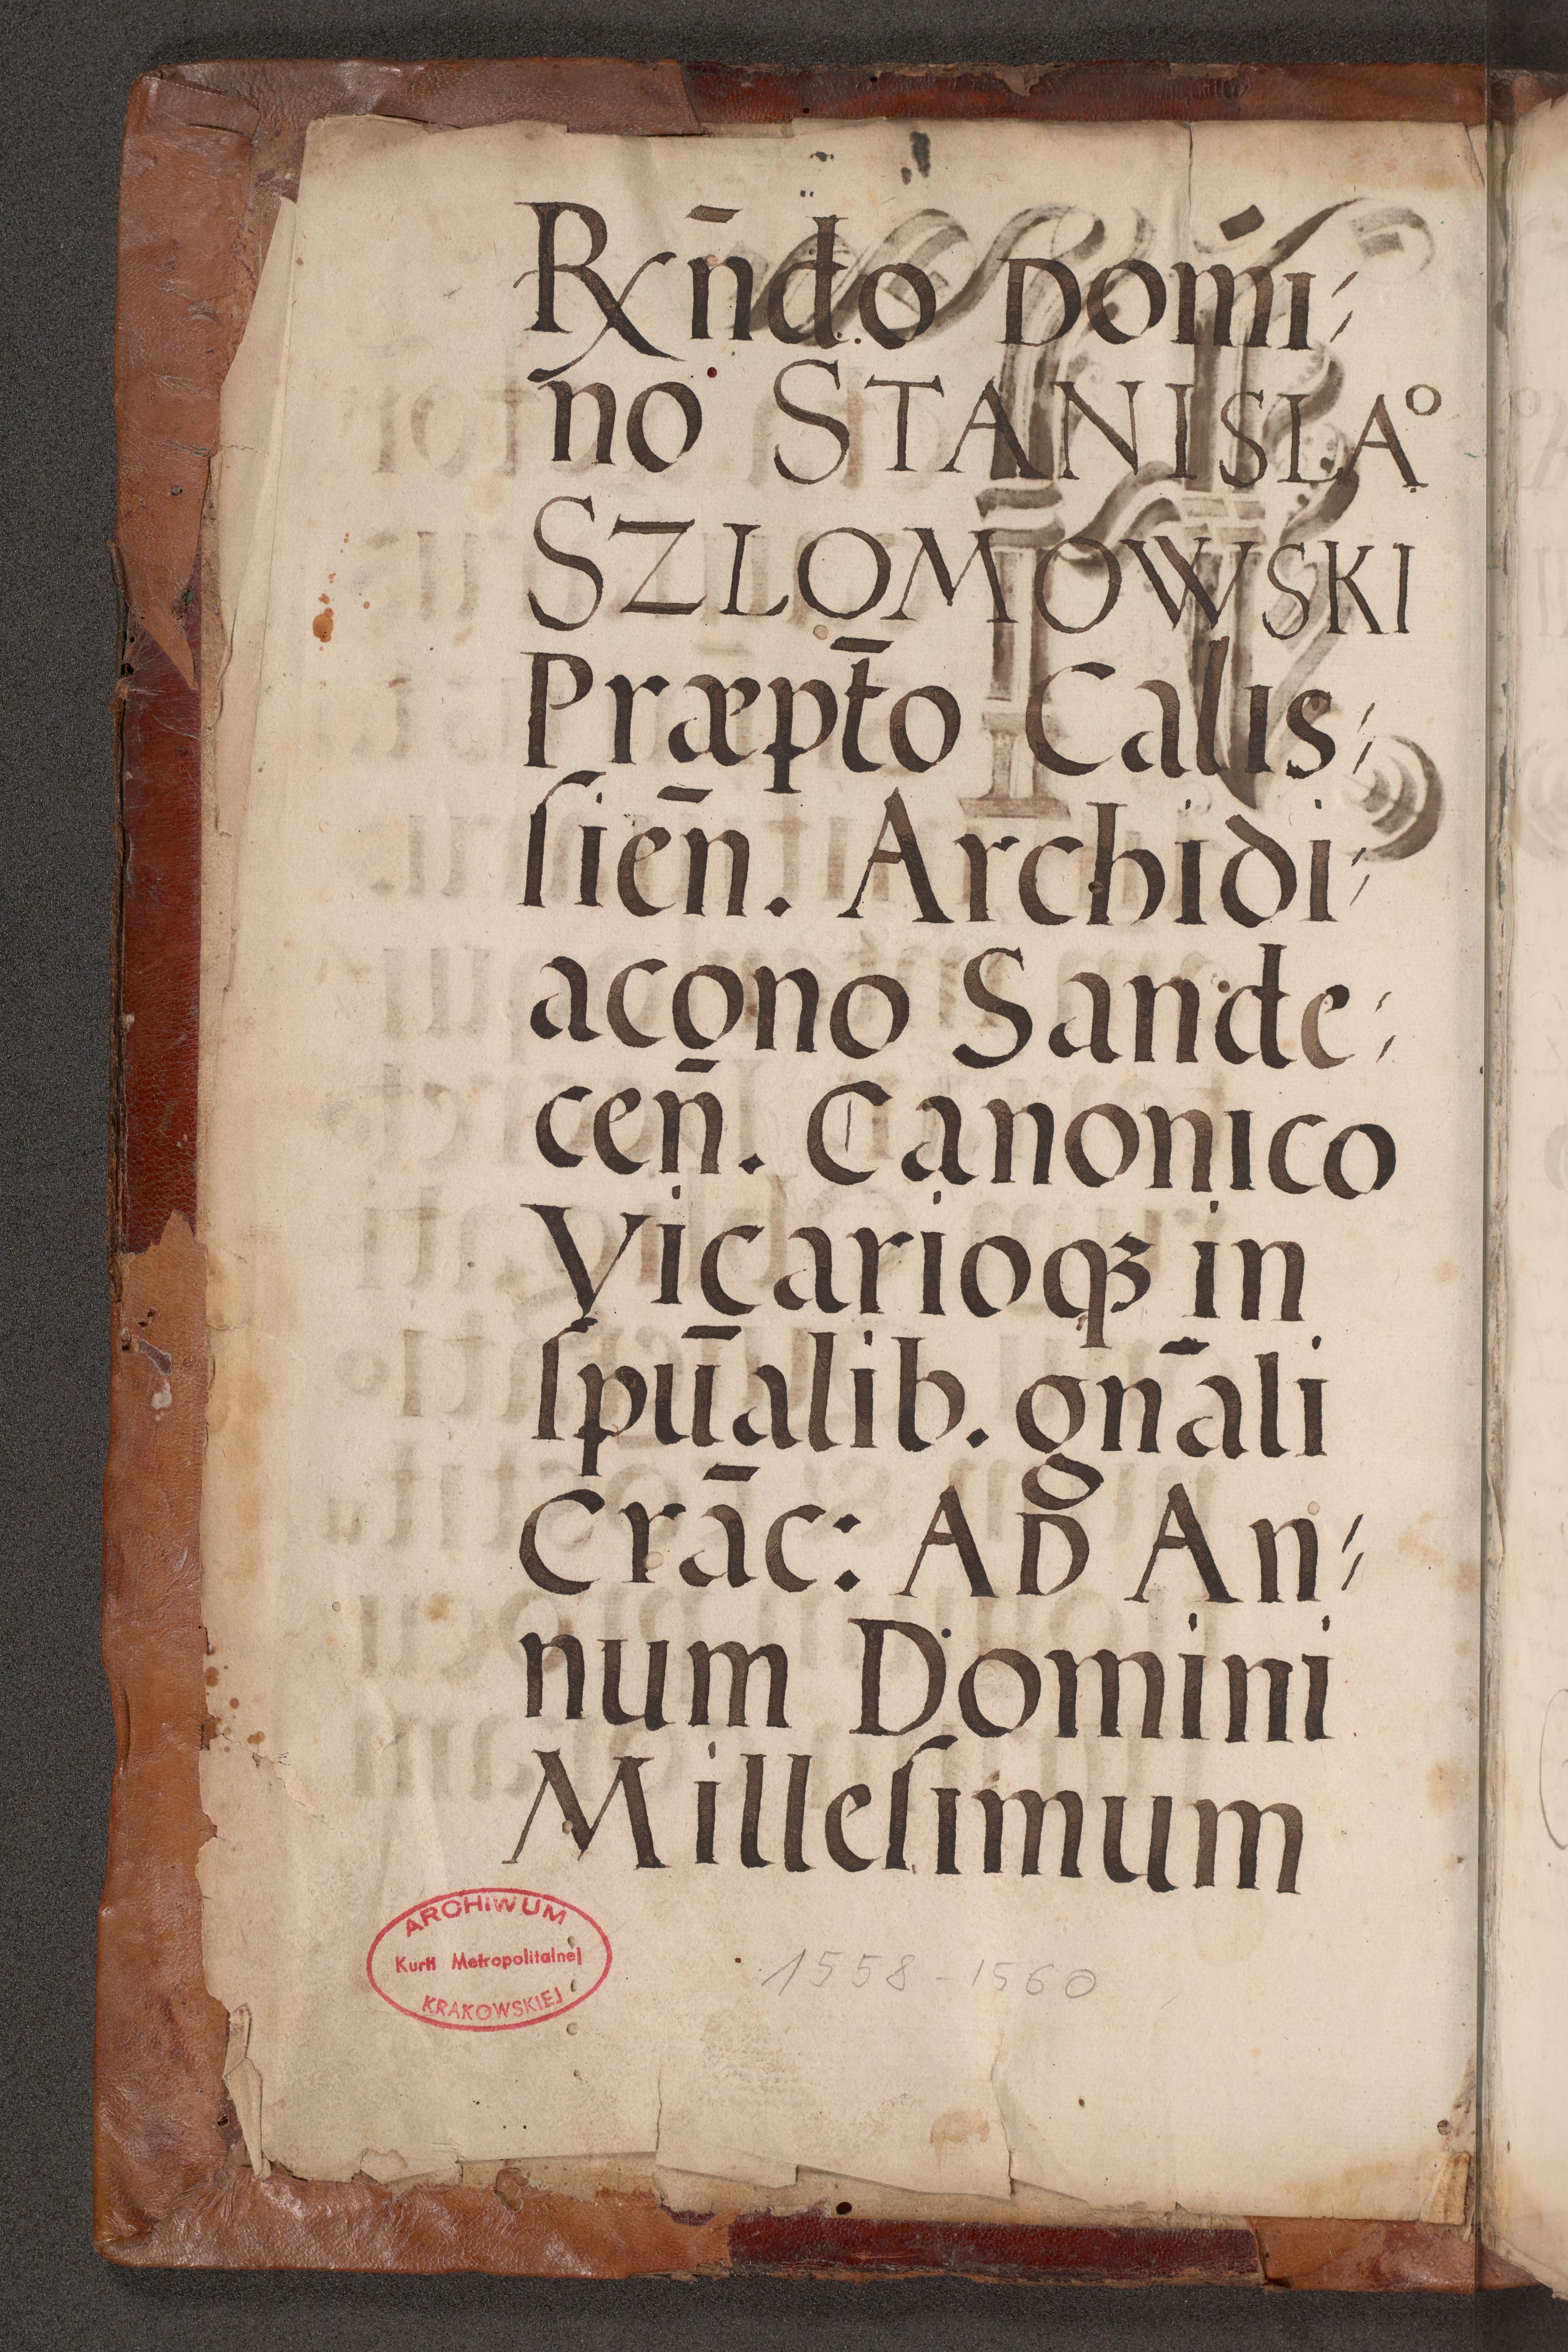 Rxn̄do Dom̄i⸗
no STANISLAº
SZLOMOWSKI
Præpt̄o Calis⸗
ſien̄. Archidi⸗
acono Sande⸗
cen̄. Canonico
Vicarioqꝫ in
ſpūalib. gn̄ali
Crāc: AD An⸗
num Domini
Milleſimum
ARCHIWUM
Kurii Metropolitalnej
KRAKOWSKIEJ
1558 - 1560